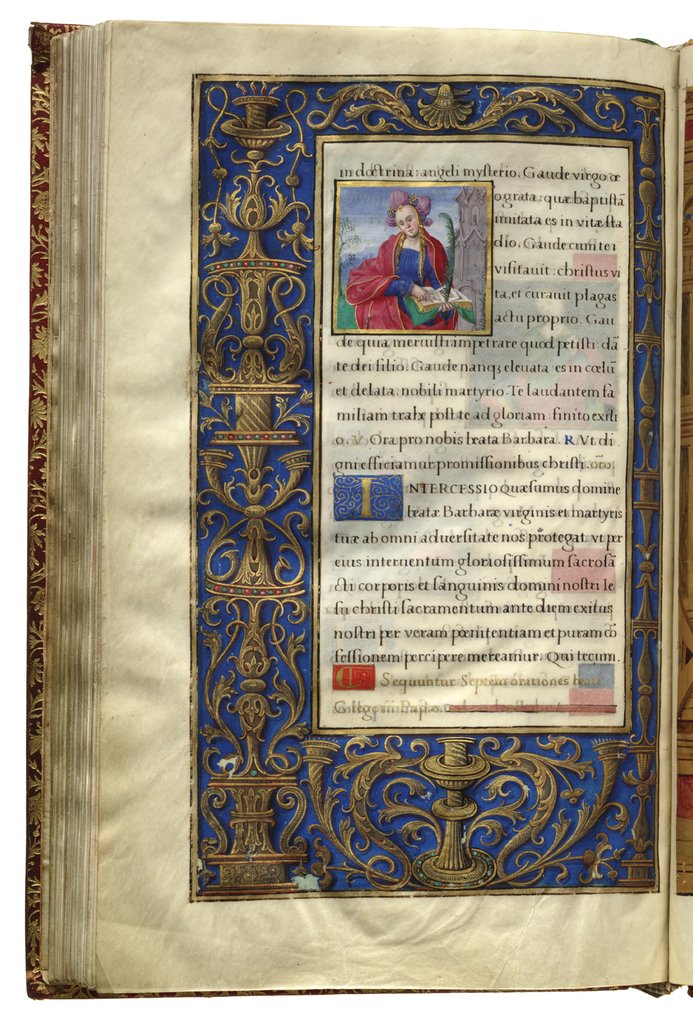 in doctrina: angeli mysterio. Gaude virgo æ
o grata: quæ baptistã
imitata es in vitæ sta
dio. Gaude cum te i
visitauit: christus vi
ta, et curauit plagas
actu proprio. Gau
de quia meruisti impetrare quod petisti: dã
te dei filio. Gaude nanq; eleuata es in cœlũ
et delata: nobili martyrio. Te laudantem fa
miliam trahe post te ad gloriam: finito exili
o. V. Ora pro nobis beata Barbara. R. Vt di
gni efficiamur promissionibus christi. oro.
INTERCESSIO quæsumus domine
beatæ Barbaræ virginis et martyris
tuæ ab omni aduersitate nos protegat: vt per
eius interuentum gloriosissimum sacrosã
cti corporis et sanguinis domini nostri Ie
su christi sacramentum ante diem exitus
nostri per veram pœnitentiam et puram cõ
fessionem percipere mereamur. Qui tecum.
Sequuntur Septem orationes beati
Gregorii Papæ